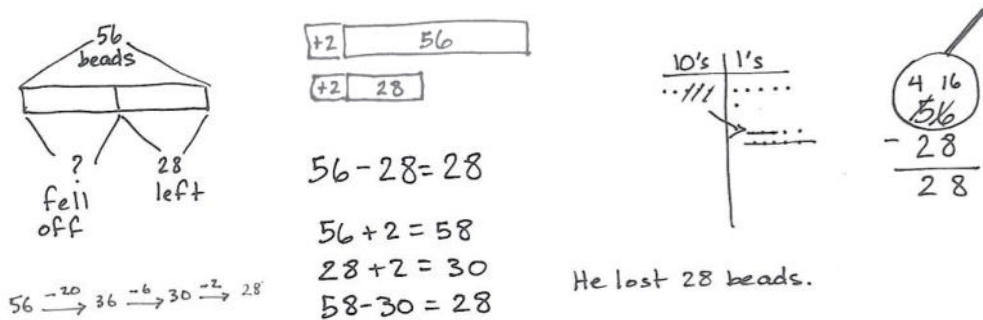 56
beads
?
fell
off
28
left
56 —-20→ 36 —-6→ 30 —-2→ 28
+2 56
+2 28
56 - 28 = 28
56 + 2 = 58
28 + 2 = 30
58 - 30 = 28
10's 1's
4 16
56
- 28
28
He lost 28 beads.